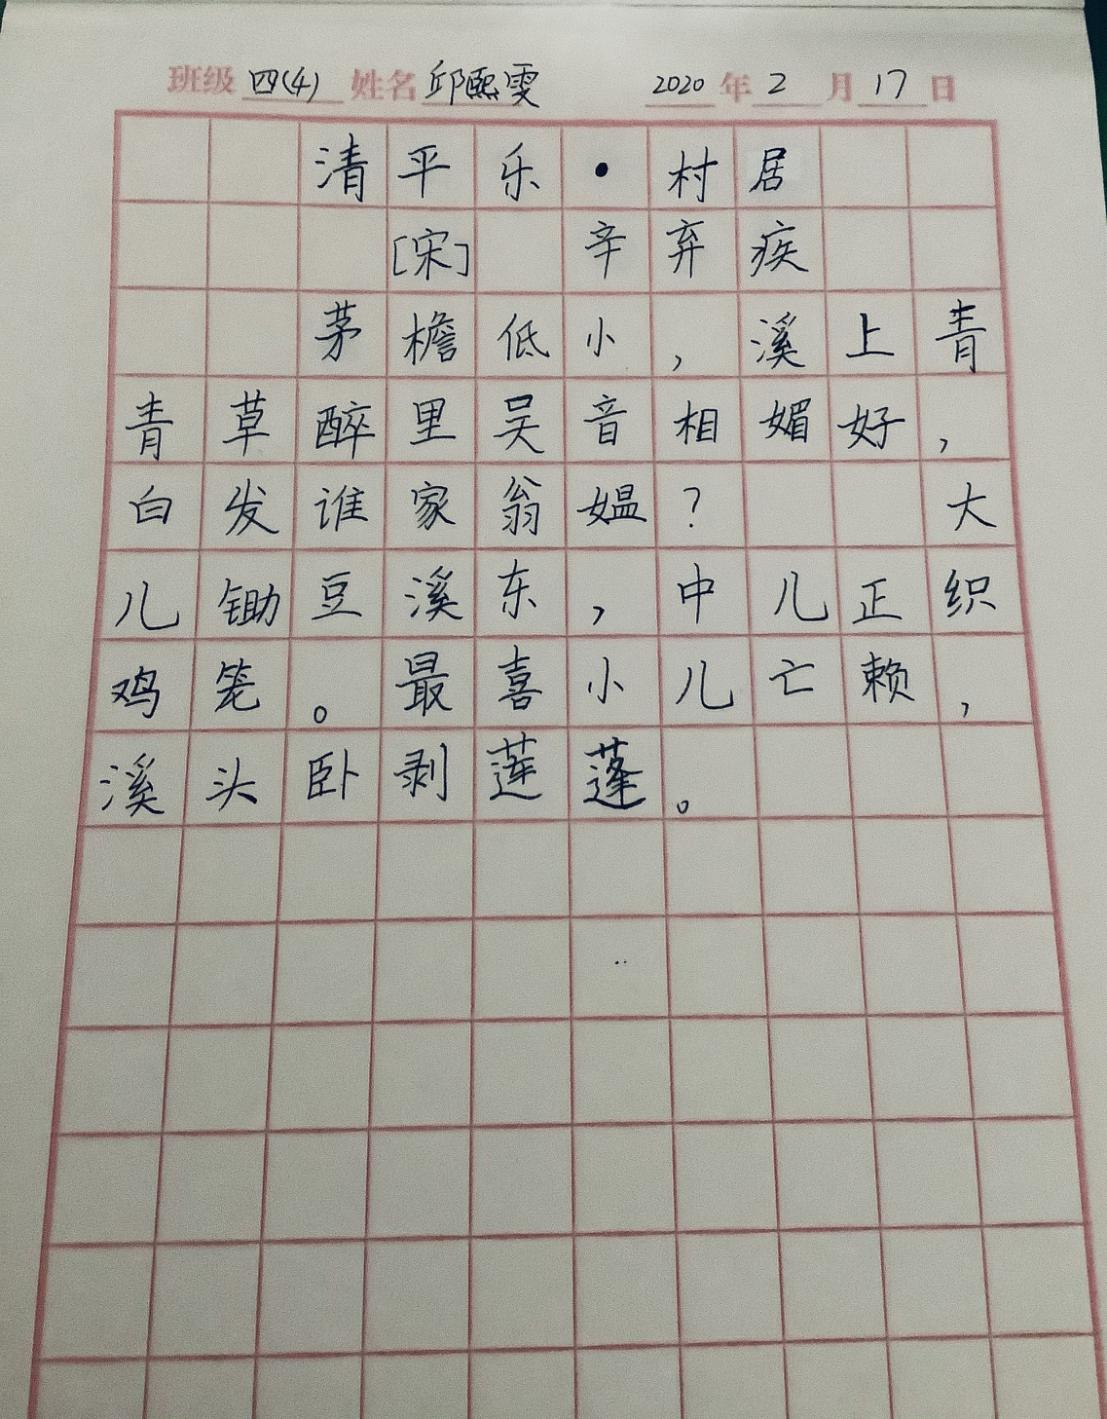 班级 四(4) 姓名 邱熙雯 2020 年 2 月 17 日
清平乐·村居
[宋] 辛弃疾
茅檐低小，溪上青
青草醉里吴音相媚好，
白发谁家翁媪？ 大
儿锄豆溪东，中儿正织
鸡笼。最喜小儿亡赖，
溪头卧剥莲蓬。